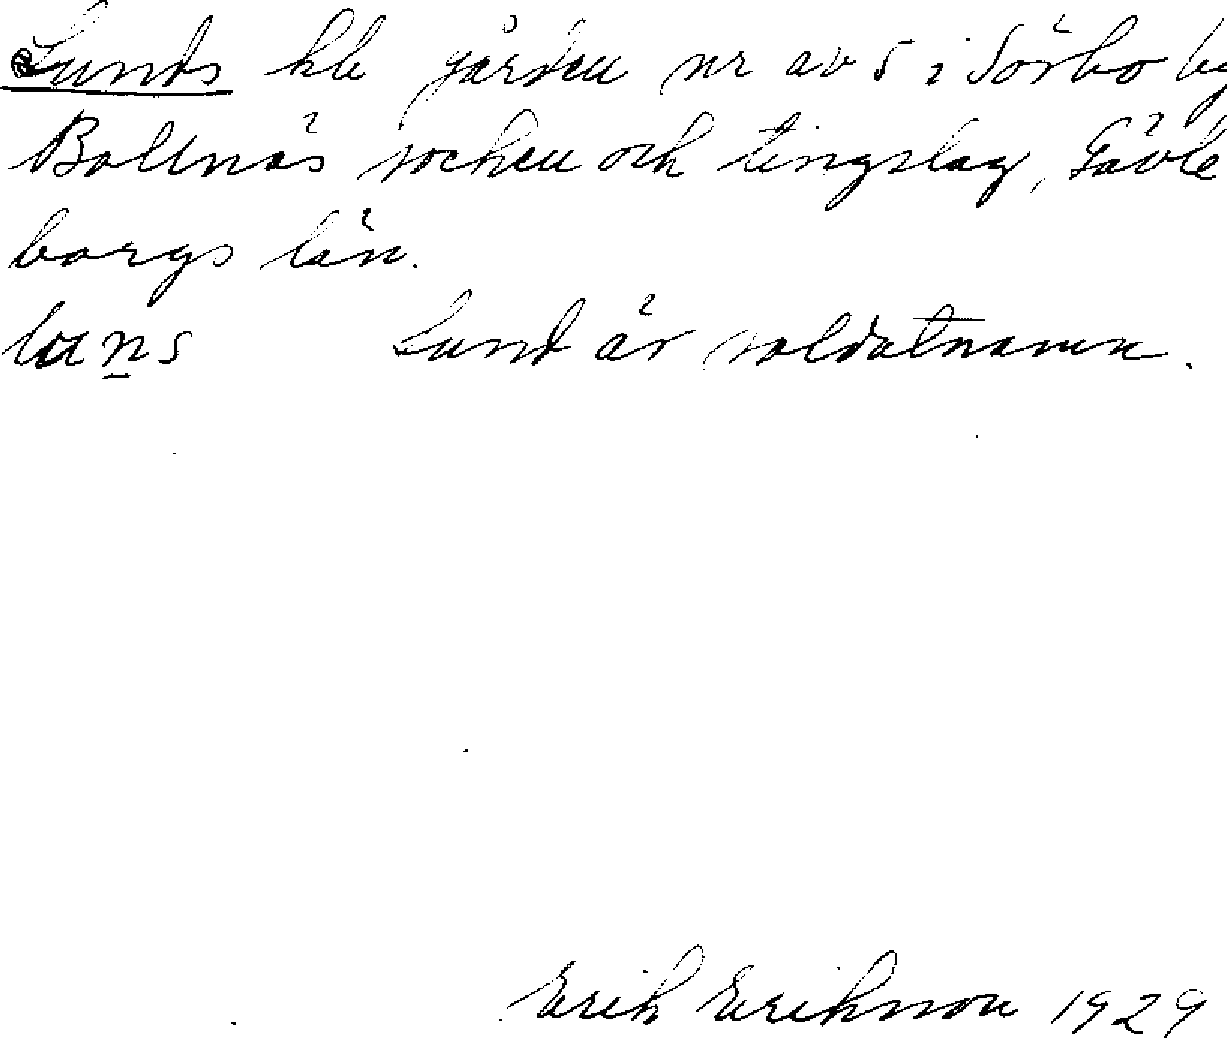 Lunds kle gården nr av 5 i Sörbo by
Bollnäs socken och tingslag, Gävle
borgs län.
luns Lund är soldatnamn.
Erik Eriksson 1929